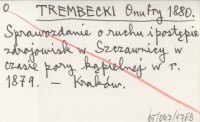 O
TREMBECKI Onufry 1880.
Sprawozdanie o ruchu i postępie
zdrojowisk w Szczawnicy w
czasie pory kąpielnej w r.
1879. — Kraków.